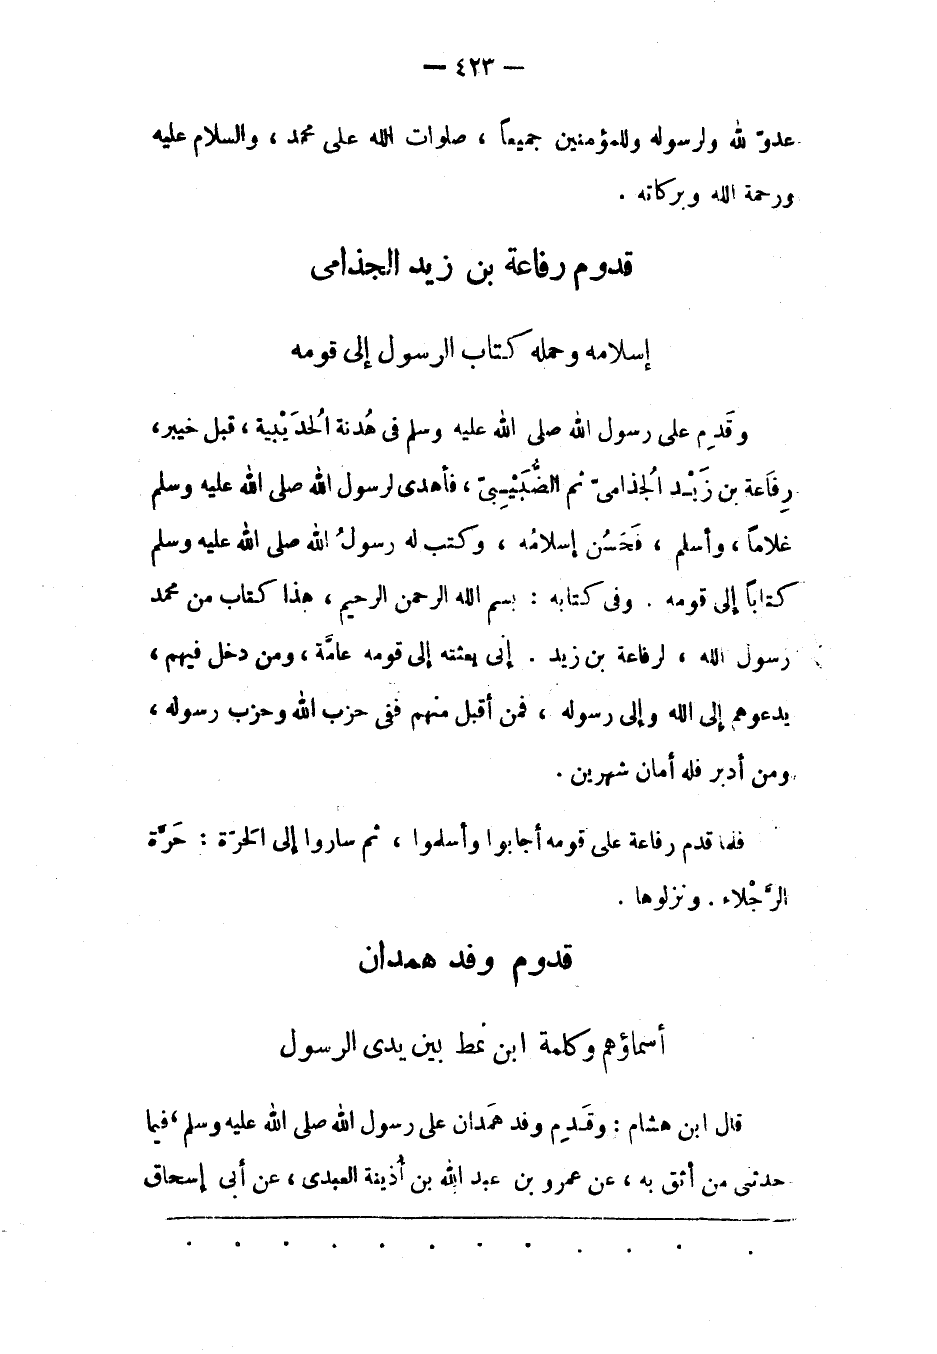 — ٤٢٣ —
عدوّ لله ولرسوله وللمؤمنين جميعاً ، صلوات الله على محمد ، والسلام عليه
ورحمة الله وبركاته .
قدوم رفاعة بن زيد الجذامى
إسلامه وحمله كتاب الرسول إلى قومه
وقَدِم على رسول الله صلى الله عليه وسلم فى هُدنة الُحدَيْبية ، قبل خيبر ،
رِفَاعة بن زَيْد الُجذامىّ ثم الضُّبَيْبِىّ ، فأهدى لرسول الله صلى الله عليه وسلم
غلاماً ، وأسلم ، فَحَسُن إسلامُه ، وكتب له رسولُ الله صلى الله عليه وسلم
كتاباً إلى قومه . وفى كتابه : بسم الله الرحمن الرحيم ، هذا كتاب من محمد
رسول الله ، لرفاعة بن زيد . إنى بعثته إلى قومه عامَّة ، ومن دخل فيهم ،
يدعوهم إلى الله وإلى رسوله ، فمن أقبل منهم ففى حزب الله وحزب رسوله ،
ومن أدبر فله أمان شهرين .
فلما قدم رفاعة على قومه أجابوا وأسلموا ، ثم ساروا إلى الَحرّة : حَرَّة
الرَّجْلاء . ونزلوها .
قدوم وفد همدان
أسماؤهم وكلمة ابن نمط بين يدى الرسول
قال ابن هشام : وقَدِم وفد هَمدان على رسول الله صلى الله عليه وسلم ، فيما
حدثنى من أثق به ، عن عمرو بن عبد الله بن أُذينة العبدى ، عن أبى إسحاق
. . . . . . . . . . .